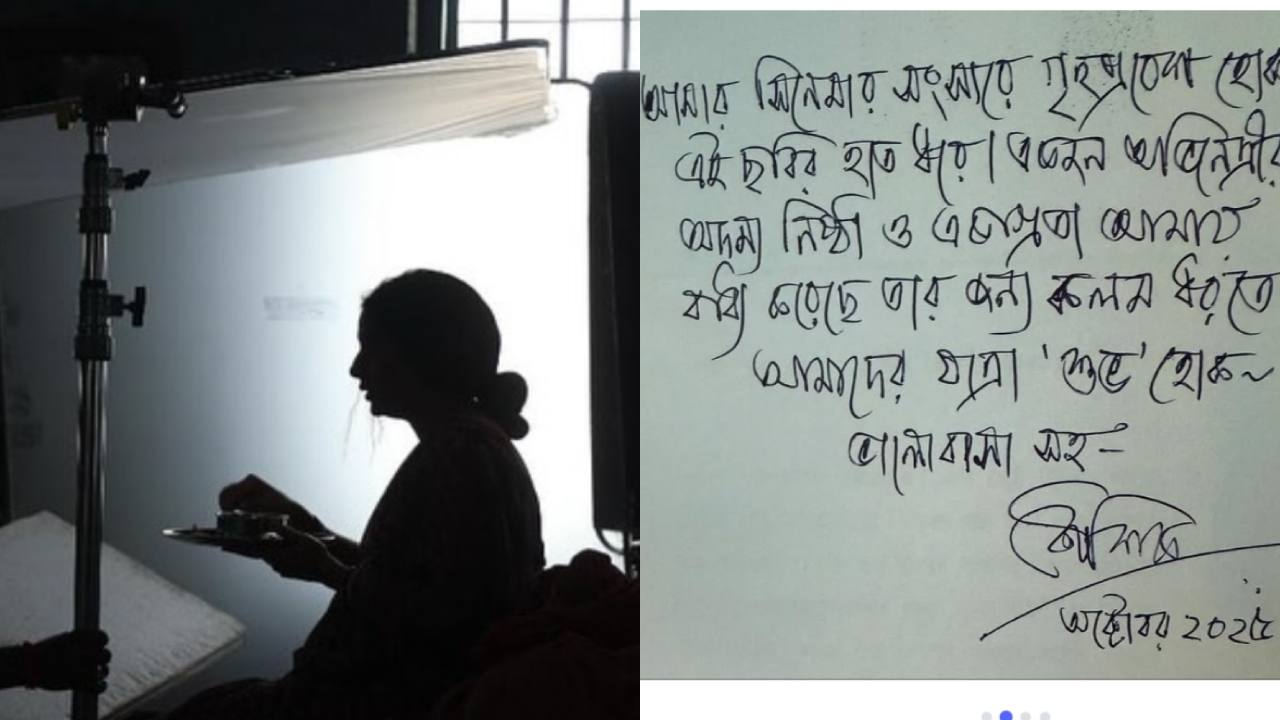 আমার সিনেমার সংসারে গৃহপ্রবেশ হোক
এই ছবির হাত ধরে। একজন অভিনেত্রীর
অদম্য নিষ্ঠা ও একাগ্রতা আমায়
বাধ্য করেছে তার জন্য কলম ধরতে
আমাদের যাত্রা 'শুভ' হোক~
ভালোবাসা সহ-
অক্টোবর ২০২৫